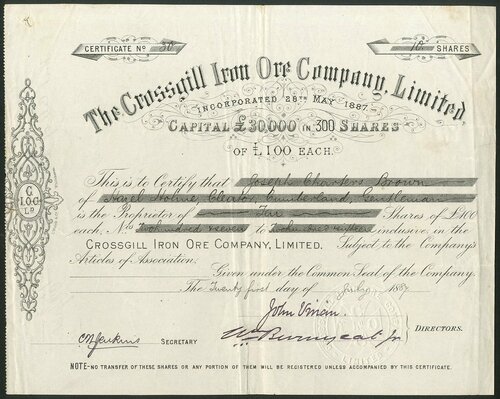 CERTIFICATE No 50
10 SHARES
The Crossgill Iron Ore Company, Limited.
INCORPORATED 28TH MAY 1887.
CAPITAL £30,000 IN 300 SHARES
OF £100 EACH.
C
I.O.C
LD
This is to Certify that Joseph Charters Brown
of Hazel Holme, Cleator, Cumberland, Gentleman
is the Proprietor of Ten Shares of £100
each, Nos Two hundred to inclusive in the
CROSSGILL IRON ORE COMPANY, LIMITED. Subject to the Company's
Articles of Association.
Given under the Common Seal of the Company
The Twenty first day of July 1887
John Vivian.
Wm Burnyeat Jr
DIRECTORS.
SECRETARY
LIMITED
NOTE-NO TRANSFER OF THESE SHARES OR ANY PORTION OF THEM WILL BE REGISTERED UNLESS ACCOMPANIED BY THIS CERTIFICATE.